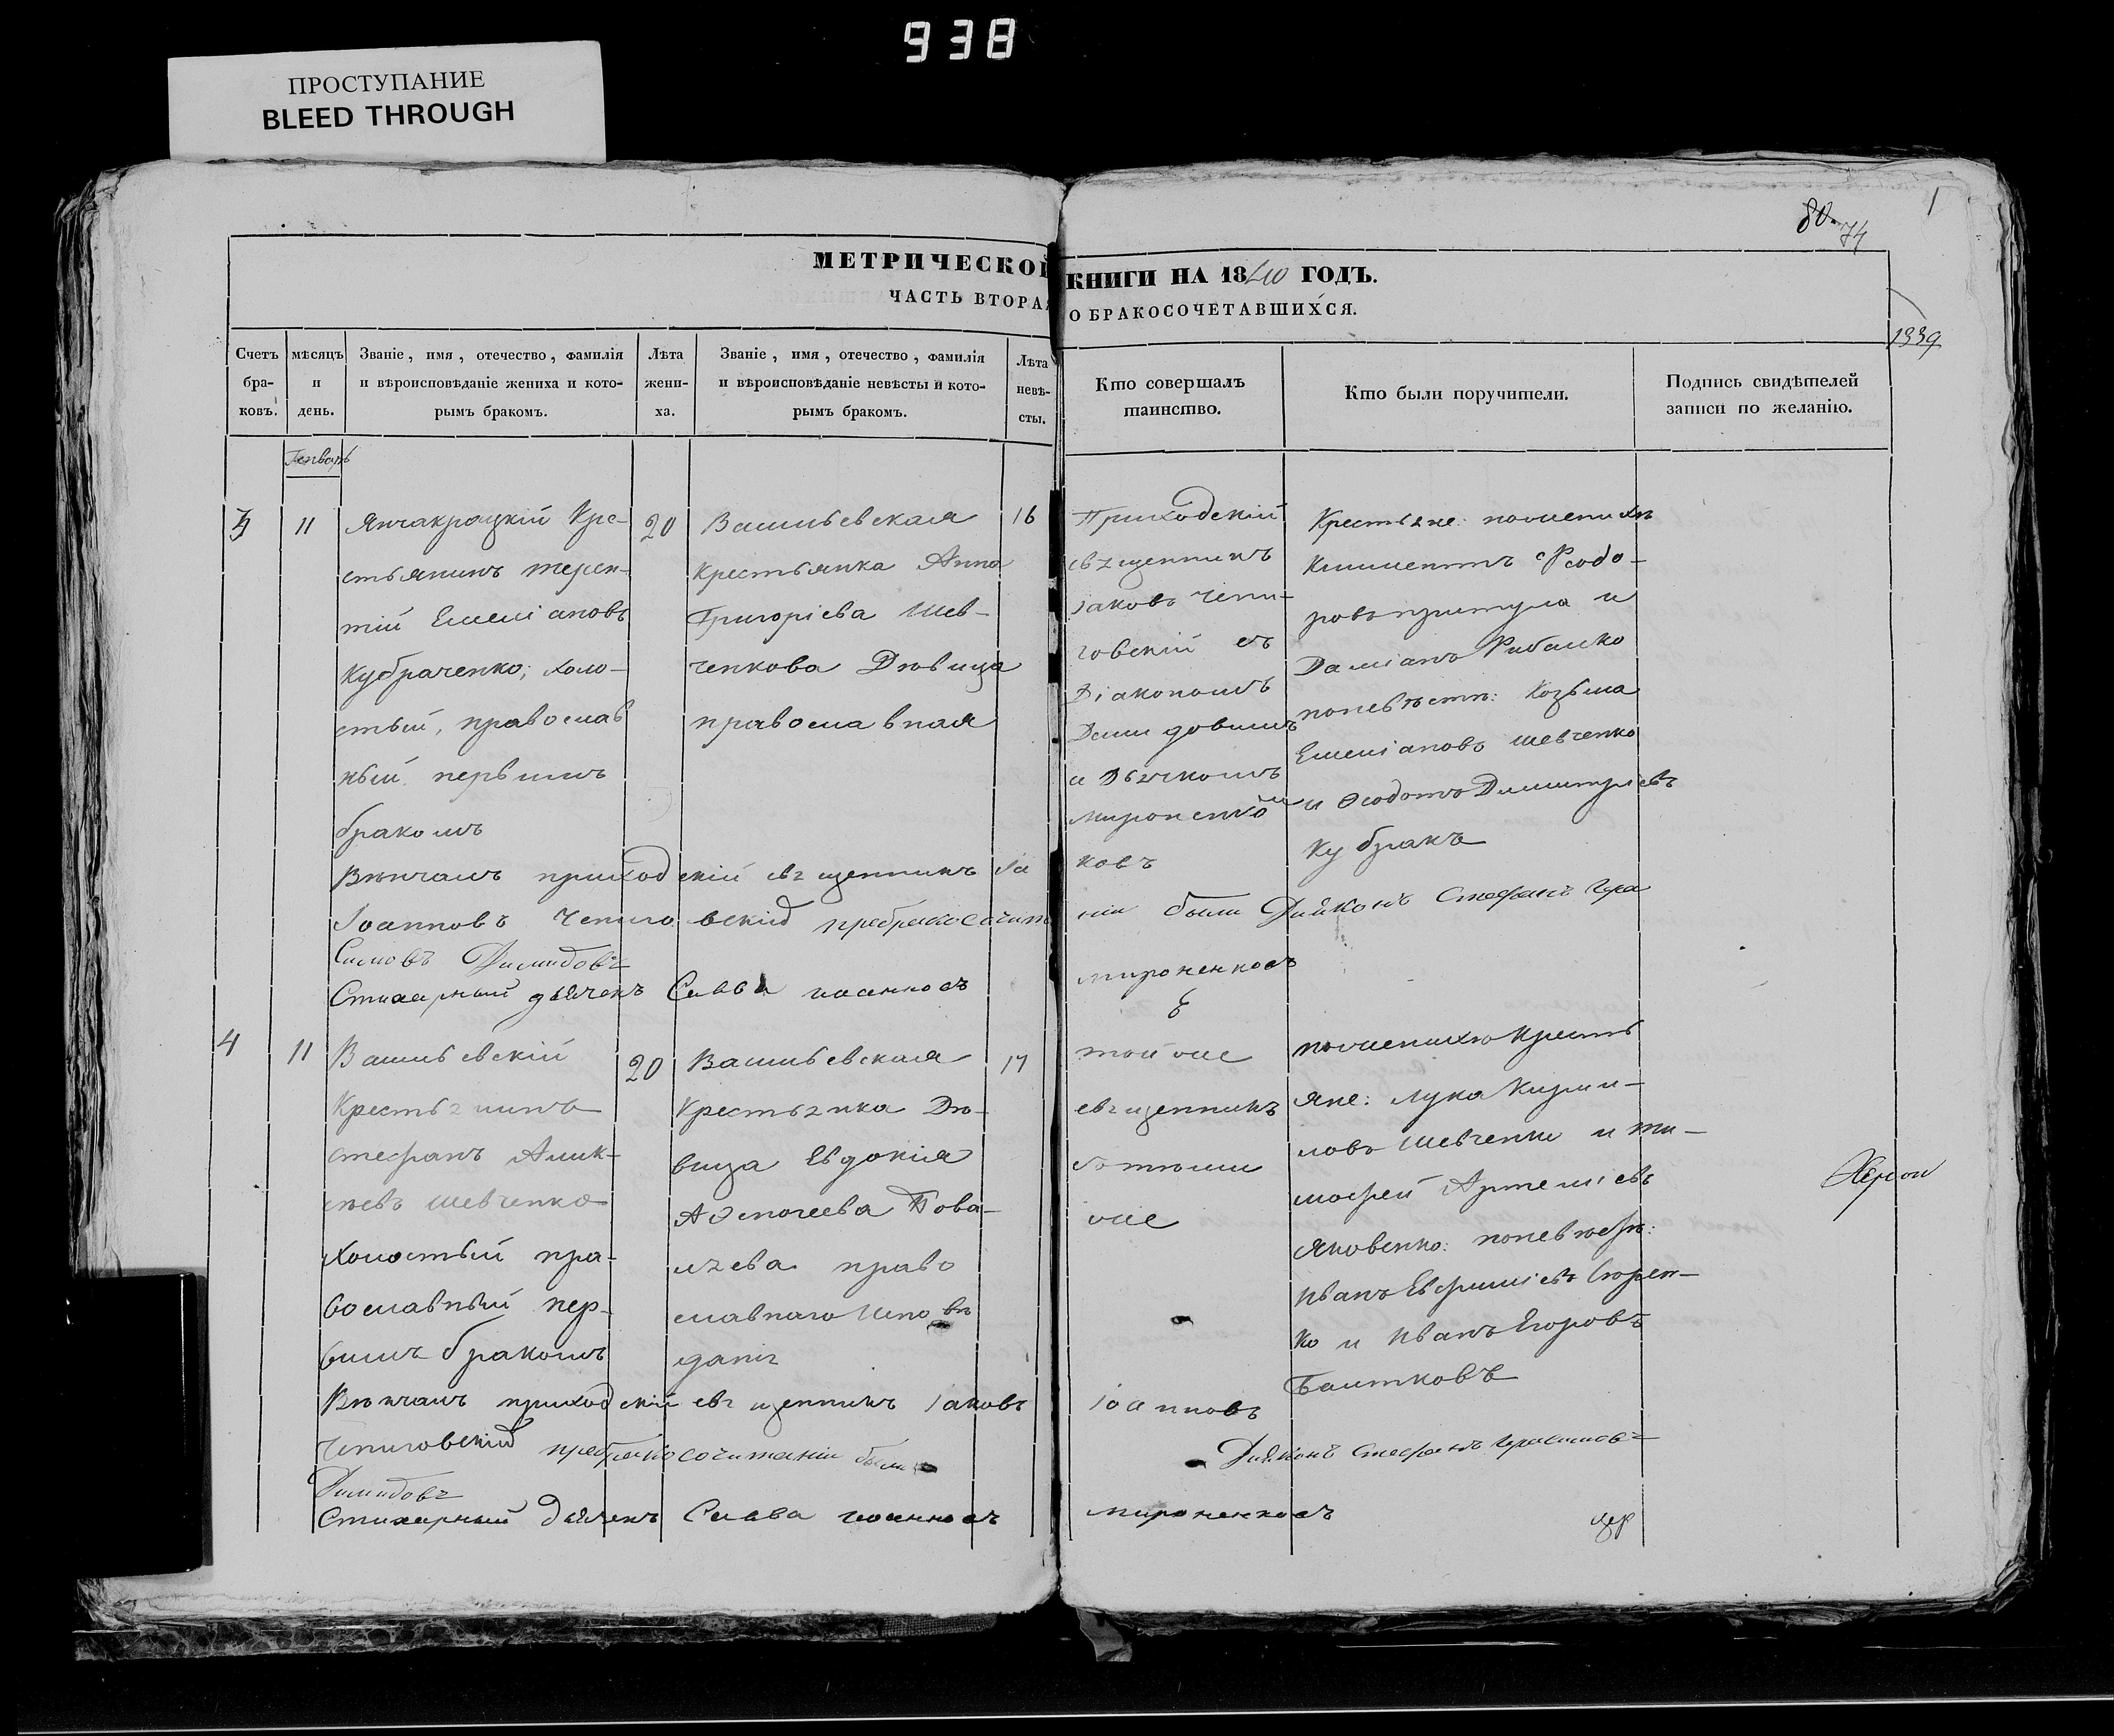 938
ПРОСТУПАНИЕ
BLEED THROUGH
1
80. 74
МЕТРИЧЕСКОЙ КНИГИ НА 1840 ГОДЪ.
ЧАСТЬ ВТОРАЯ О БРАКОСОЧЕТАВШИХСЯ.
1339
Счетъ бра-ковъ.
мѣсяцъ и день.
Званіе, имя, отечество, фамилія
и вѣроисповѣданіе жениха и кото-
рымъ бракомъ.
Лѣта жени-ха.
Званіе, имя, отечество, фамилія
и вѣроисповѣданіе невѣсты и кото-
рымъ бракомъ.
Лѣта невѣ-сты.
Кто совершалъ
таинство.
Кто были поручители.
Подпись свидѣтелей
записи по желанію.
Генварь
3
11
Янчакрацкій Кре-
стьянинъ Терен-
тій Емеліановъ
Кубраченко; холо-
стый, православ
ный первымъ
бракомъ
20
Васильевская
Крестьянка Анна
Григоріева Шев-
ченкова Дѣвица
православная
16
Приходскій
священникъ
Іаковъ Чепи-
говскій съ
Діакономъ
Демидовымъ
и Дьячкомъ
Мироненко
ковъ
Крестьяне: поженихѣ
Климентъ Феодо-
ровъ притула и
Даміанъ Рибалко
поневѣстѣ: Козьма
Емеліановъ Шевченко
и Ѳеодотъ Димитріевъ
Кубракъ
Вѣнчалъ приходскій священникъ
Іоанновъ Чепиговскій пребракосочита ніи были Діяконъ Стефанъ Гера
Симовъ Димидовъ
Стихарный дьячекъ Савва иоанновъ мироненковъ
4
11
Васильевскій
Крестьянинъ
Стефанъ Алик-
сѣевъ Шевченко
Холостый пра-
вославный пер-
вымъ бракомъ
20
Васильевская
Крестьянка Дѣ-
вица Евдокія
17
православнаго исповѣ
данія
той же
священникъ
сотѣми
же
поженихѣ Кресть
яне: Лука Кирил-
ловъ Шевченко и Ти-
мофей Артеміевъ
Яковенко: поневѣстѣ:
Иванъ Евфиміевъ
ко и Иванъ Егоровъ
Херсон
Вѣнчалъ приходскій священникъ Іаковъ Іоанновъ
Чепиговскій пребракосочитаніи были Діяконъ Стефанъ Герасимовъ
Димидовъ
Стихарный Дьячекъ Савва иоанновъ мироненковъ